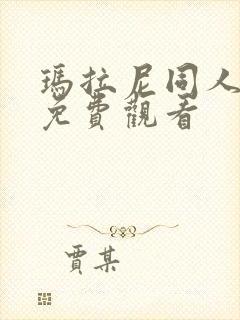 瑪拉尼同人
免費觀看
賈某